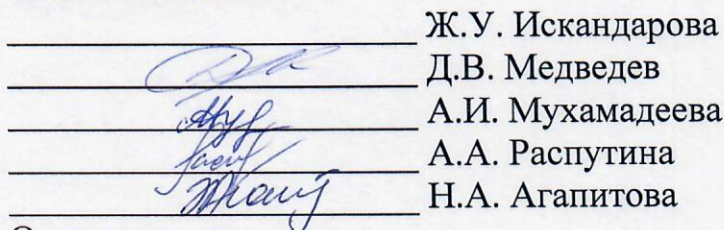 Ж.У. Искандарова
Д.В. Медведев
А.И. Мухамадеева
А.А. Распутина
Н.А. Агапитова